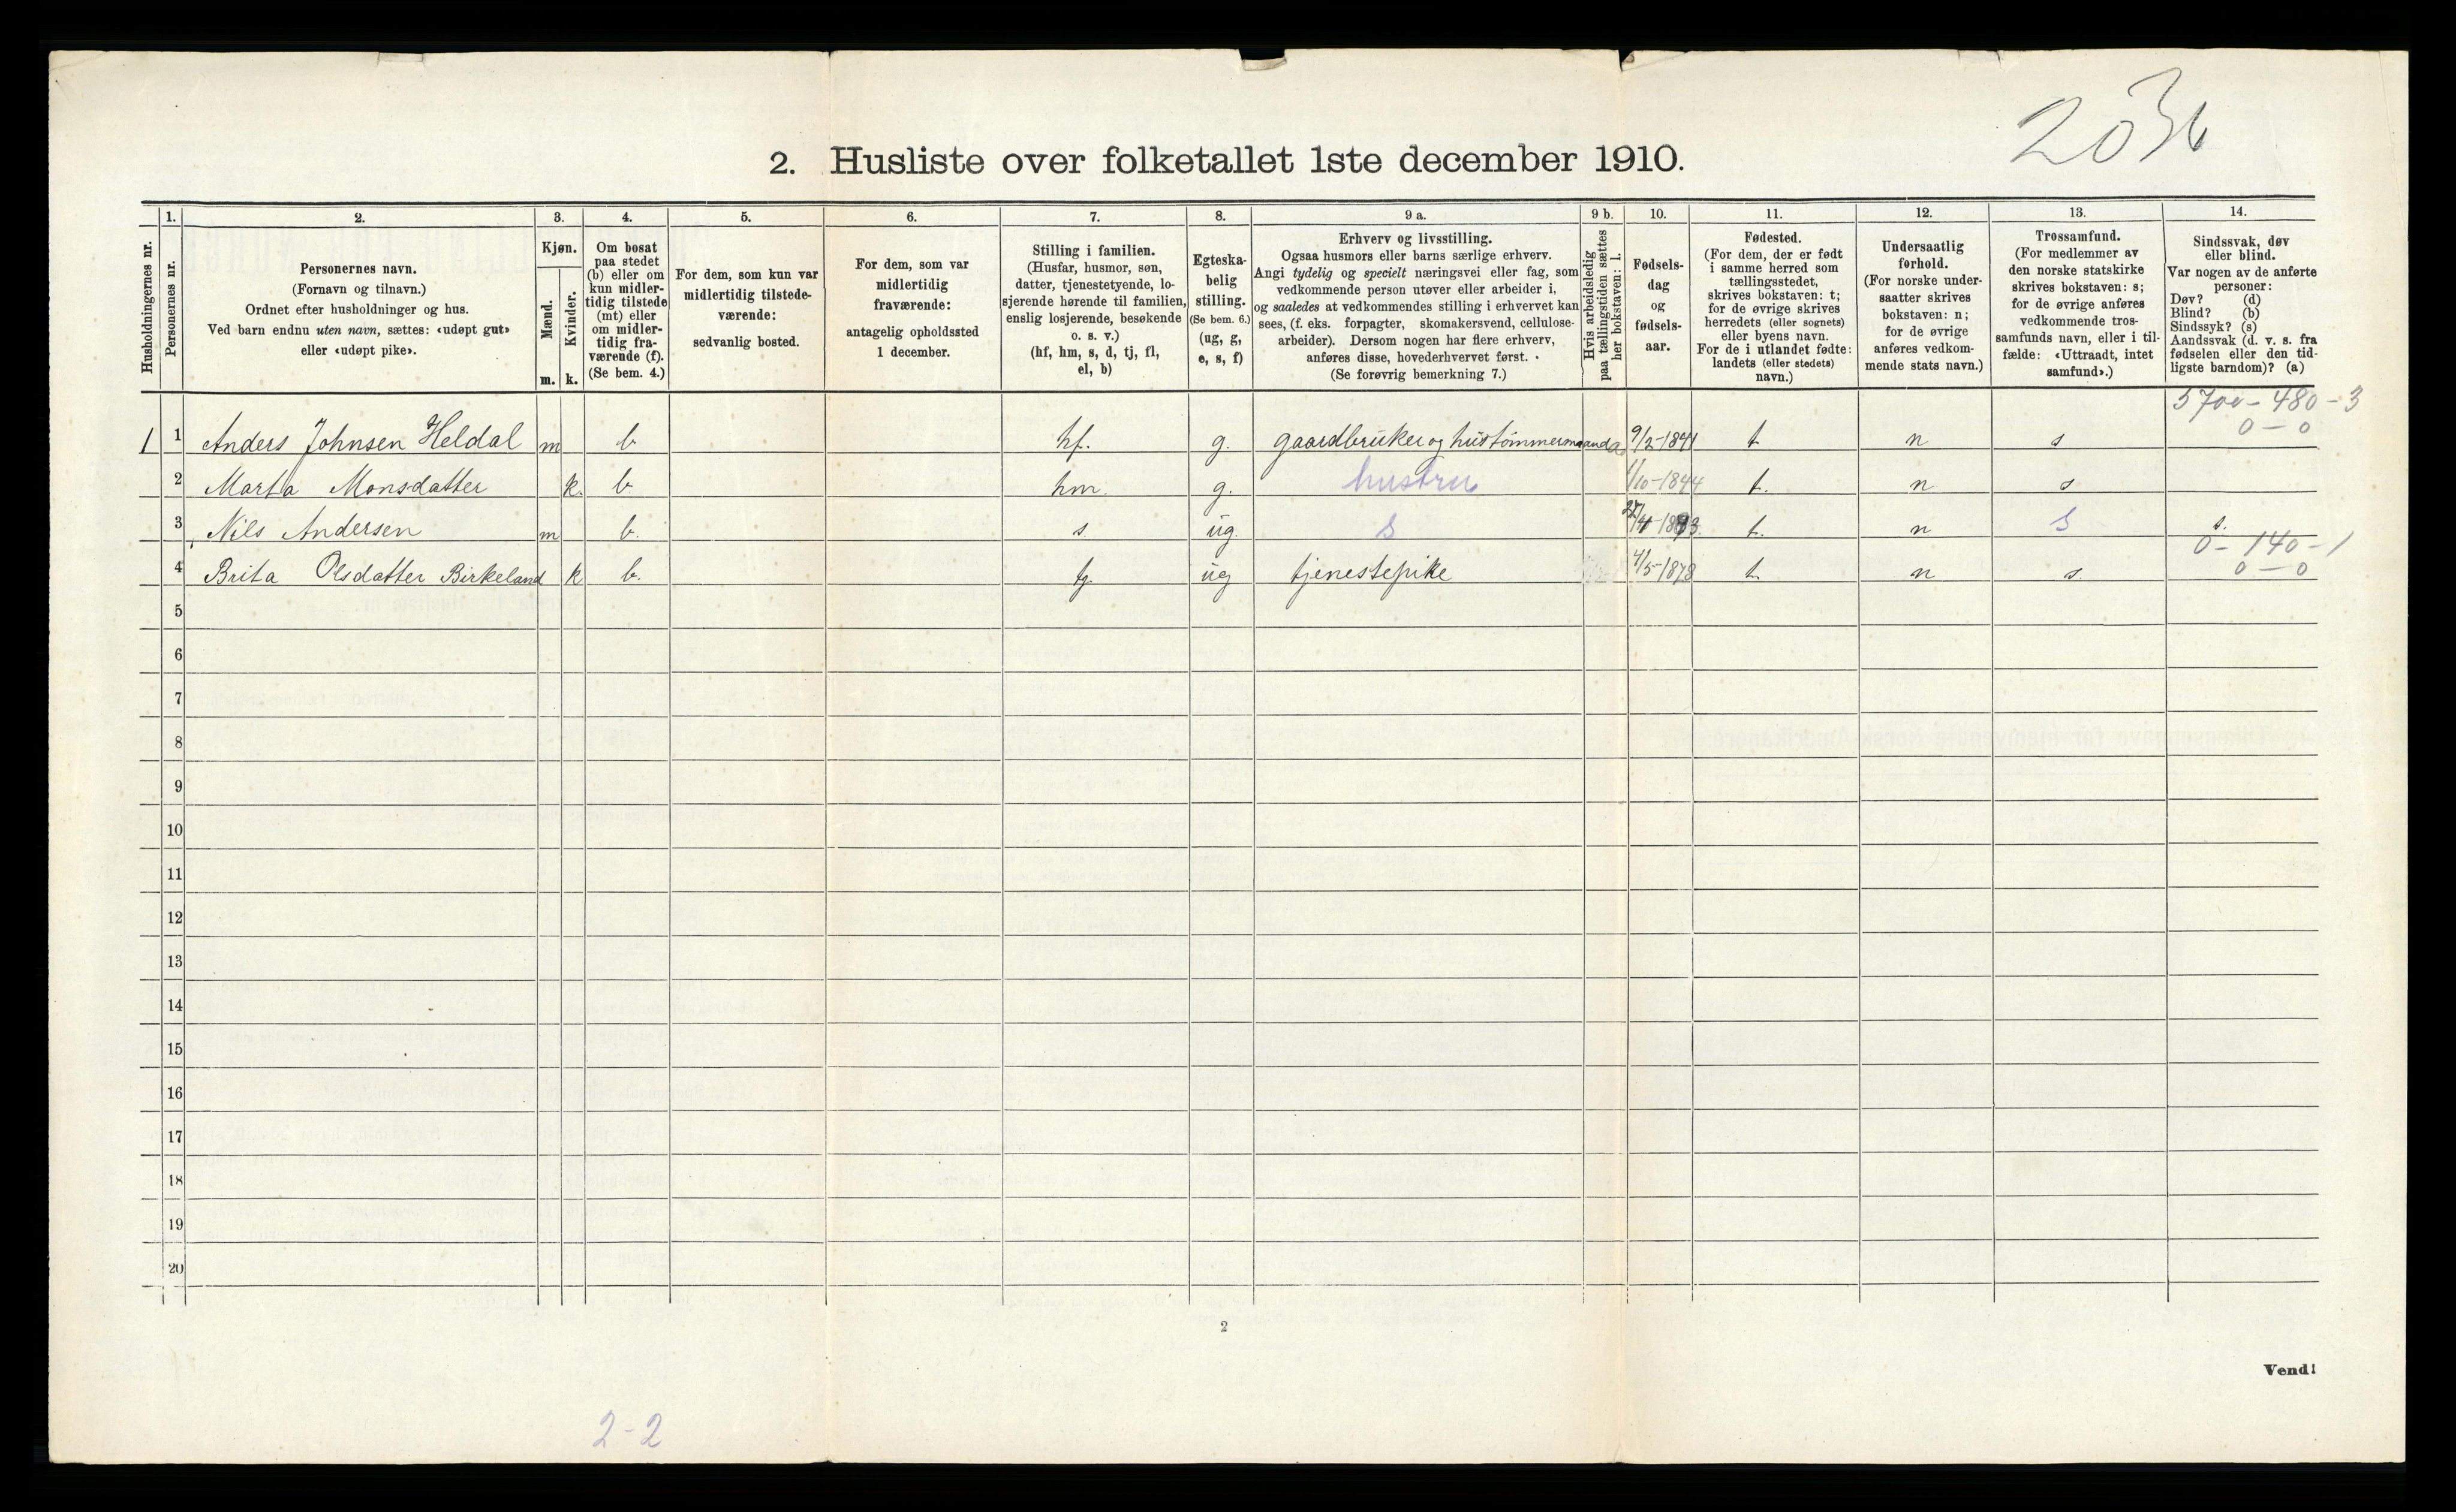 2036
2. Husliste over folketallet 1ste december 1910.
Husholdningernes nr.
1.
Personernes nr.
2.
Personernes navn.
(Fornavn og tilnavn.)
Ordnet efter husholdninger og hus.
Ved barn endnu uten navn, sættes: «udøpt gut»
eller «udøpt pike».
3.
Kjøn.
Mænd.
m.
Kvinder.
k.
4.
Om bosat
paa stedet
(b) eller om
kun midler-
tidig tilstede
(mt) eller
om midler-
tidig fra-
værende (f).
(Se bem. 4.)
5.
For dem, som kun var
midlertidig tilstede-
værende:
sedvanlig bosted.
6.
For dem, som var
midlertidig
fraværende:
antagelig opholdssted
1 december.
7.
Stilling i familien.
(Husfar, husmor, søn,
datter, tjenestetyende, lo-
sjerende hørende til familien,
enslig losjerende, besøkende
o. s. v.)
(hf, hm, s, d, tj, fl,
el, b)
8.
Egteska-
belig
stilling.
(Se bem. 6.)
(ug, g,
e, s, f)
9 a.
Erhverv og livsstilling.
Ogsaa husmors eller barns særlige erhverv.
Angi tydelig og specielt næringsvei eller fag, som
vedkommende person utøver eller arbeider i,
og saaledes at vedkommendes stilling i erhvervet kan
sees, (f. eks. forpagter, skomakersvend, cellulose-
arbeider). Dersom nogen har flere erhverv,
anføres disse, hovederhvervet først.
(Se forøvrig bemerkning 7.)
9 b.
Hvis arbeidsledig
paa tællingstiden sættes
her bokstaven: l.
10.
Fødsels-
dag
og
fødsels-
aar.
11.
Fødested.
(For dem, der er født
i samme herred som
tællingsstedet,
skrives bokstaven: t;
for de øvrige skrives
herredets (eller sognets)
eller byens navn.
For de i utlandet fødte:
landets (eller stedets)
navn.)
12.
Undersaatlig
forhold.
(For norske under-
saatter skrives
bokstaven: n;
for de øvrige
anføres vedkom-
mende stats navn.)
13.
Trossamfund.
(For medlemmer av
den norske statskirke
skrives bokstaven: s;
for de øvrige anføres
vedkommende tros-
samfunds navn, eller i til-
fælde: «Uttraadt, intet
samfund».)
14.
Sindssvak, døv
eller blind.
Var nogen av de anførte
personer:
Døv? (d)
Blind? (b)
Sindssyk? (s)
Aandssvak (d. v. s. fra
fødselen eller den tid-
ligste barndom)? (a)
5700 - 480 - 3
0 - 0
1 1 Anders Johnsen Heldal m b hf. g. gaardbruker og hustømmermand 9/2-1841 t n s
2 Marta Monsdatter k. b hm. g. hustru 1/10-1844 t. n s
3 Nils Andersen m b. s ug. S t. n S s.
0 - 140 - 1
4 Brita Olsdatter Birkeland k b. tj. ug tjenestepike 4/5-1878 t. n s. 0 - 0
5
6
7
8
9
10
11
12
13
14
15
16
17
18
19
20
2
Vend!
2-2